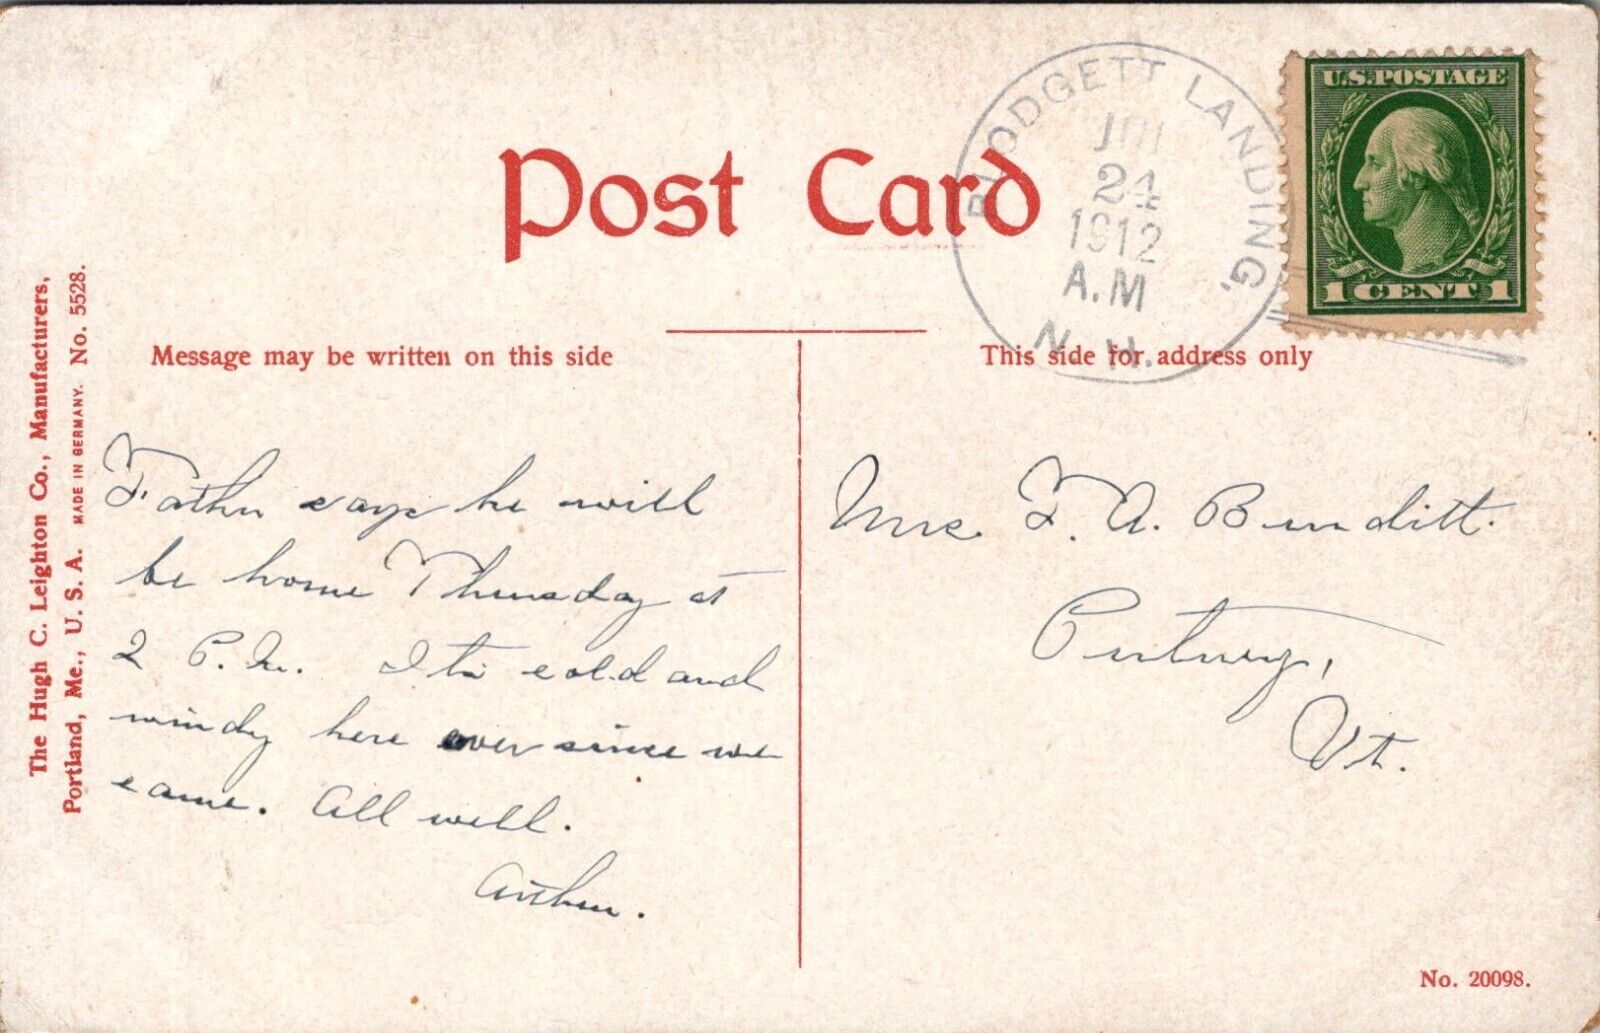 Post Card
BLODGETT LANDING,
JUL
24
1912
A.M
N. H.
U.S. POSTAGE
1 CENT 1
Message may be written on this side
This side for address only
The Hugh C. Leighton Co., Manufacturers,
Portland, Me., U. S. A. MADE IN GERMANY. No. 5528.
Father says he will
be home Thursday at
2 P.M. It is cold and
windy here ever since we
came. All well.
Arthur.
Mrs. F. A. Burditt.
Putney,
Vt.
No. 20098.